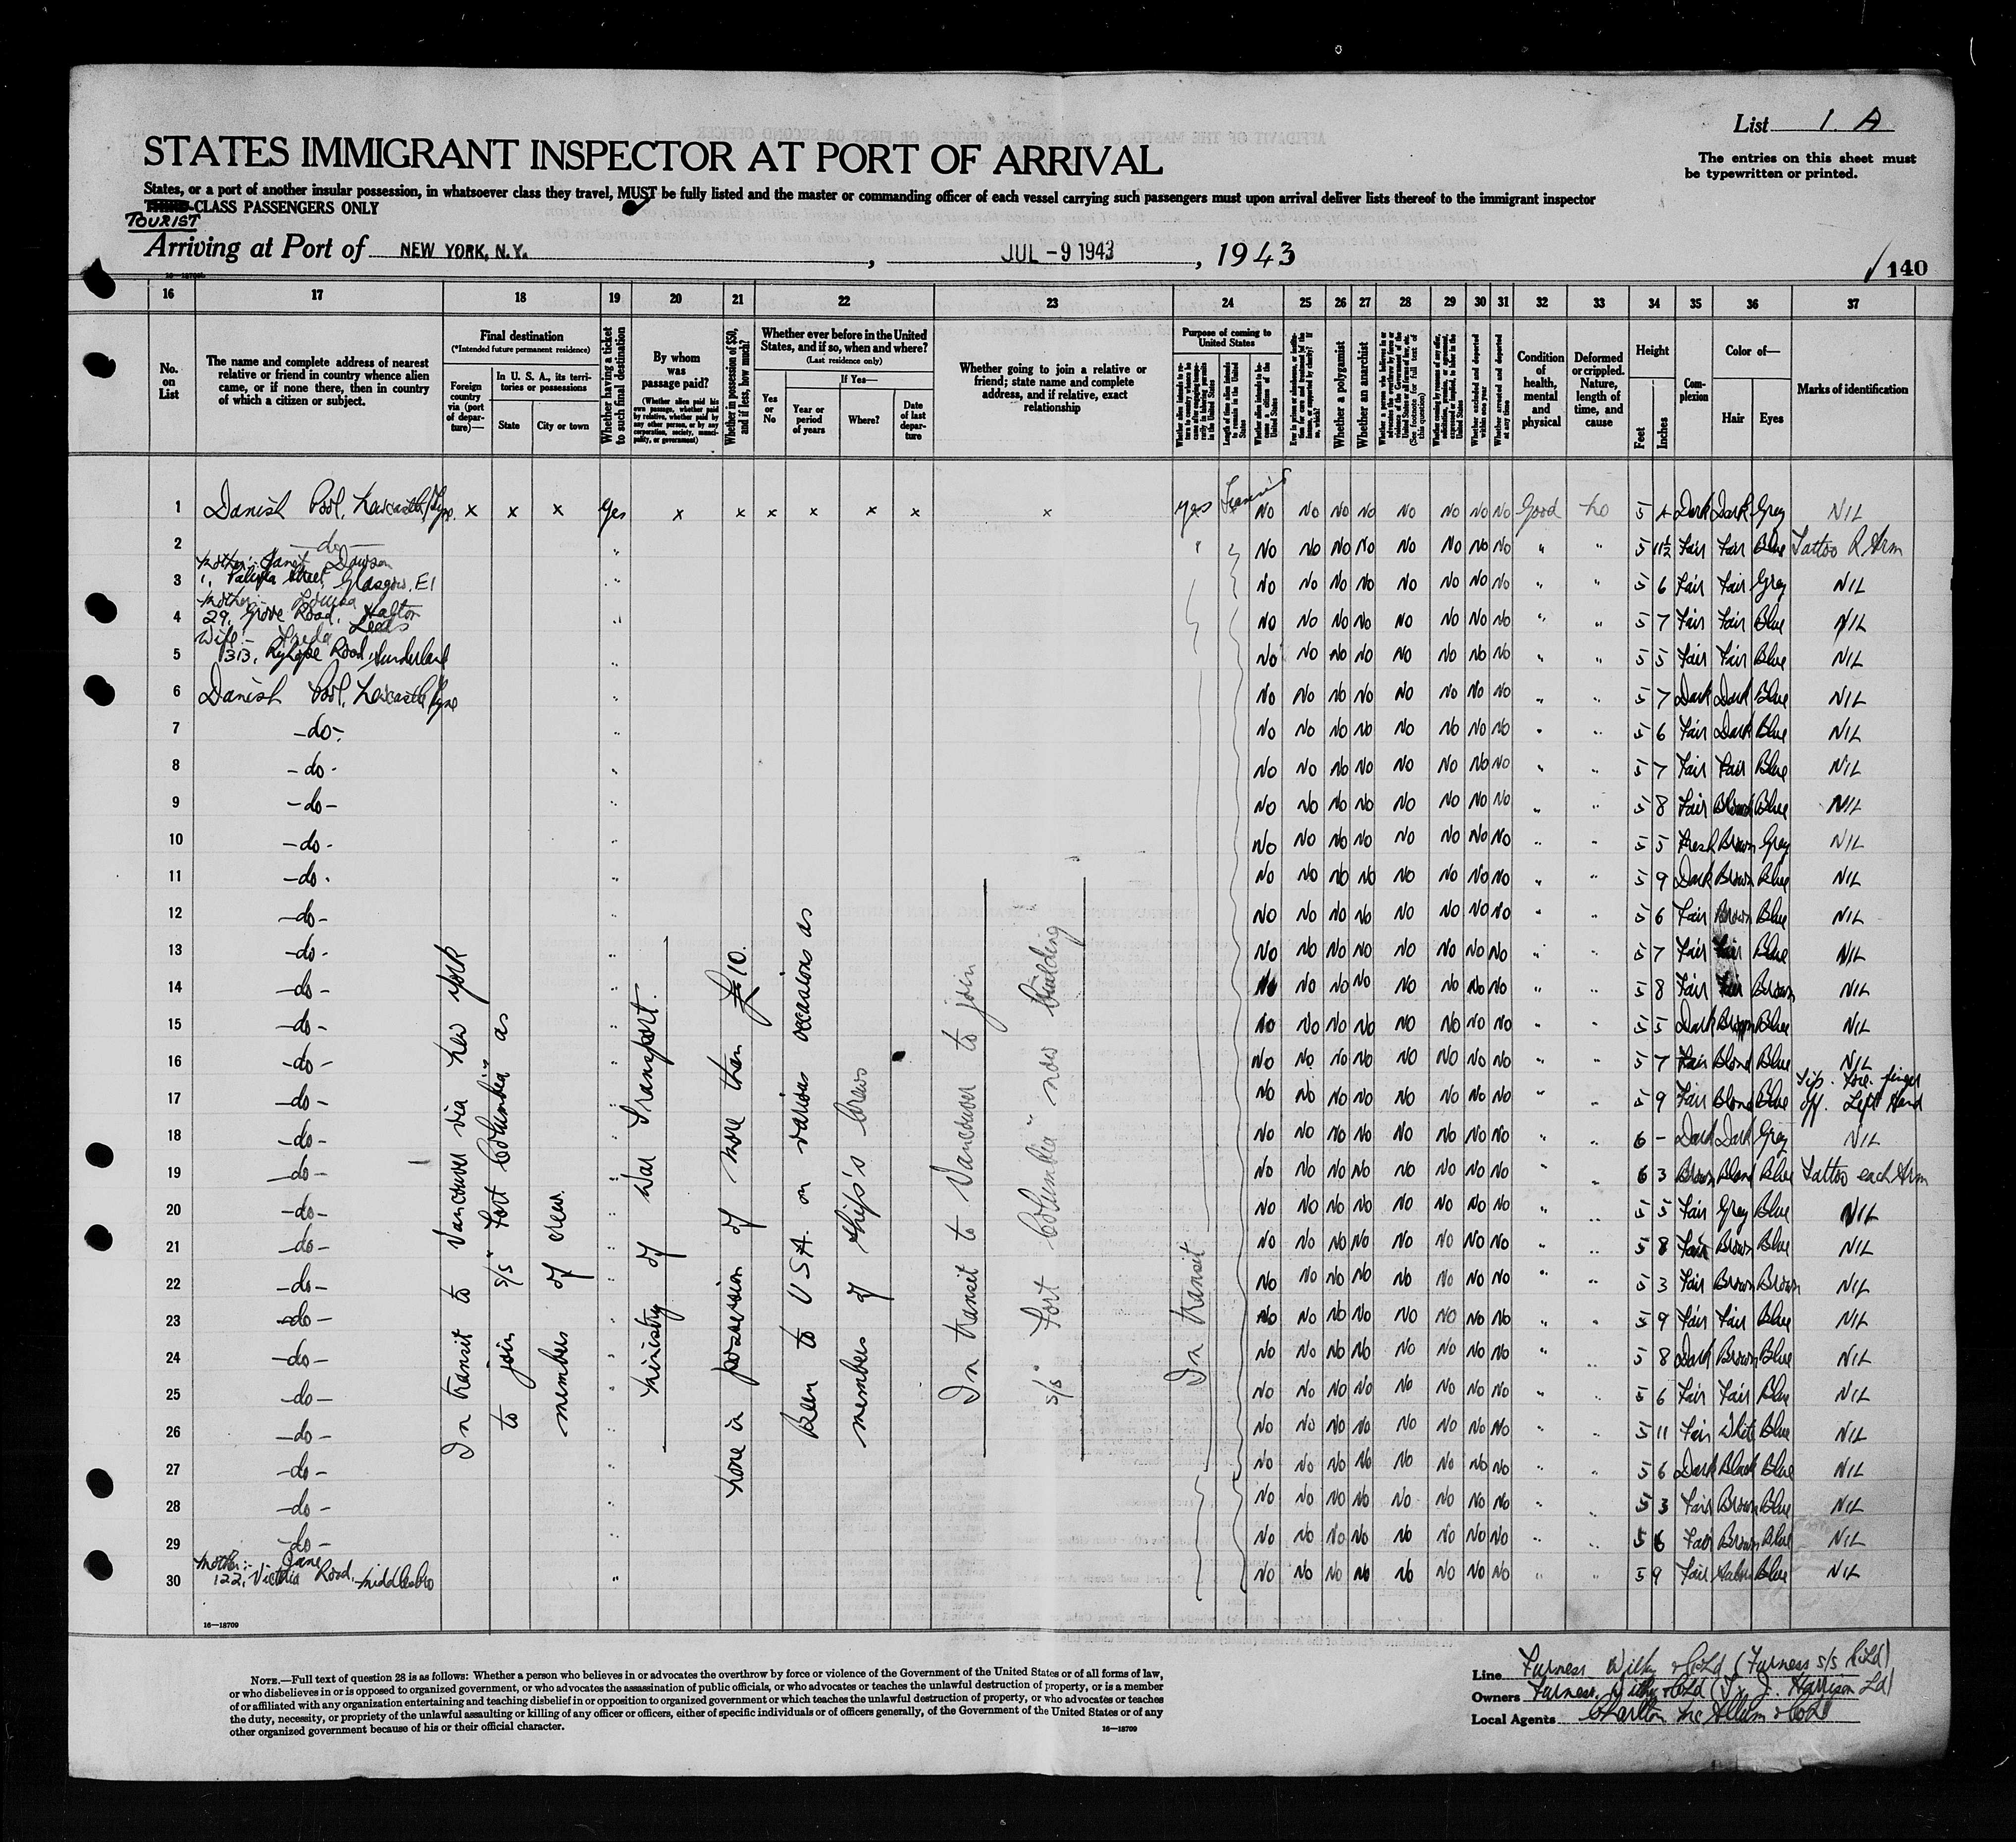 List 1 A
The entries on this sheet must
be typewritten or printed.
STATES IMMIGRANT INSPECTOR AT PORT OF ARRIVAL
States, or a port of another insular possession, in whatsoever class they travel, MUST be fully listed and the master or commanding officer of each vessel carrying such passengers must upon arrival deliver lists thereof to the immigrant inspector
THIRD-CLASS PASSENGERS ONLY
TOURIST
Arriving at Port of NEW YORK, N.Y. , JUL -9 1943 , 1943
140
16 17 18 19 20 21 22 23 24 25 26 27 28 29 30 31 32 33 34 35 36 37
No. on List
The name and complete address of nearest relative or friend in country whence alien came, or if none there, then in country of which a citizen or subject.
Final destination
(*Intended future permanent residence)
Foreign country via (port of departure)—
In U. S. A., its territories or possessions
State
City or town
Whether having a ticket to such final destination
By whom was passage paid?
(Whether alien paid his own passage, whether paid by relative, whether paid by any other person, or by any corporation, society, municipality, or government)
Whether in possession of $50, and if less, how much?
Whether ever before in the United States, and if so, when and where?
(Last residence only)
Yes or No
If Yes—
Year or period of years
Where?
Date of last departure
Whether going to join a relative or friend; state name and complete address, and if relative, exact relationship
Purpose of coming to United States
Length of time alien intends to remain in the United States
Whether alien intends to become a citizen of the United States
Whether a polygamist
Whether an anarchist
Whether excluded and deported within one year
Whether arrested and deported at any time
Condition of health, mental and physical
Deformed or crippled. Nature, length of time, and cause
Height
Feet
Inches
Complexion
Color of—
Hair
Eyes
Marks of identification
1 Danish Pool, Newcastle/Tyne. x x x Yes x x x x x x x yes Transit No No No No No No No No Good No 5 Dark Dark Grey NIL
2 —do— " No No No No No No No No " " 5 11½ Fair Fair Blue Tattoo R Arm
Mother:- Janet Dawson
3 1, Street, Glasgow, E1 " No No No No No No No No " " 5 6 Fair Fair Grey NIL
Mother:- Louisa
4 29, Grove Road, Halton Leeds " No No No No No No No No " " 5 7 Fair Fair Blue NIL
Wife:- Freda
5 313, Ryhope Road, Sunderland " No No No No No No No No " " 5 5 Fair Fair Blue NIL
6 Danish Pool, Newcastle/Tyne " No No No No No No No No " " 5 7 Dark Dark Blue NIL
7 —do— " No No No No No No No No " " 5 6 Fair Dark Blue NIL
8 —do— " No No No No No No No No " " 5 7 Fair Fair Blue NIL
9 —do— " No No No No No No No No " " 5 8 Fair Blond Blue NIL
10 —do— " No No No No No No No No " " 5 5 Fresh Brown Grey NIL
11 —do— " No No No No No No No No " " 5 9 Dark Brown Blue NIL
12 —do— No No No No No No No No " " 5 6 Fair Brown Blue NIL
13 —do— " No No No No No No No No " " 5 7 Fair Fair Blue NIL
14 —do— " No No No No No No No No " " 5 8 Fair Fair Brown NIL
15 —do— " No No No No No No No No " " 5 5 Dark Brown Blue NIL
16 —do— " No No No No No No No No " " 5 7 Fair Blond Blue NIL
17 —do— " No No No No No No No No " " 5 9 Fair Blond Blue Tip. Fore finger off. Left Hand
18 —do— " No No No No No No No No " " 6 - Dark Dark Grey NIL
19 —do— " No No No No No No No No " " 6 3 Brown Blond Blue Tattoo each Arm
20 —do— " No No No No No No No No " " 5 5 Fair Grey Blue NIL
21 —do— " No No No No No No No No " " 5 8 Fair Brown Blue NIL
22 —do— " No No No No No No No No " " 5 3 Fair Brown Brown NIL
23 —do— " No No No No No No No No " " 5 9 Fair Fair Blue NIL
24 —do— " No No No No No No No No " " 5 8 Dark Brown Blue NIL
25 —do— " No No No No No No No No " " 5 6 Fair Fair Blue NIL
26 —do— " No No No No No No No No " " 5 11 Fair White Blue NIL
27 —do— " No No No No No No No No " " 5 6 Dark Black Blue NIL
28 —do— " No No No No No No No No " " 5 3 Fair Brown Blue NIL
29 —do— " No No No No No No No No " " 5 6 Fair Brown Blue NIL
Mother:- Jane
30 122, Victoria Road, Middlesbro " No No No No No No No No " " 5 9 Fair Blue NIL
In transit to Vancouver via New York
to join s/s "Fort Columbia" as
members of crew.
Ministry of War Transport.
None in possession of more than £10.
Been to U S A. on various occasions as
members of ship's crews
In transit to Vancouver to join
s/s "Fort Columbia" now building
In transit
16—18709
NOTE.—Full text of question 28 is as follows: Whether a person who believes in or advocates the overthrow by force or violence of the Government of the United States or of all forms of law,
or who disbelieves in or is opposed to organized government, or who advocates the assassination of public officials, or who advocates or teaches the unlawful destruction of property, or is a member
of or affiliated with any organization entertaining and teaching disbelief in or opposition to organized government or which teaches the unlawful destruction of property, or who advocates or teaches
the duty, necessity, or propriety of the unlawful assaulting or killing of any officer or officers, either of specific individuals or of officers generally, of the Government of the United States or of any
other organized government because of his or their official character.
16—18709
Line Furness Withy & Co Ld (Furness s/s Co Ld)
Owners Furness, Withy & Co Ld (T. & J. Harrison Ld)
Local Agents Charlton McAllum & Co Ld